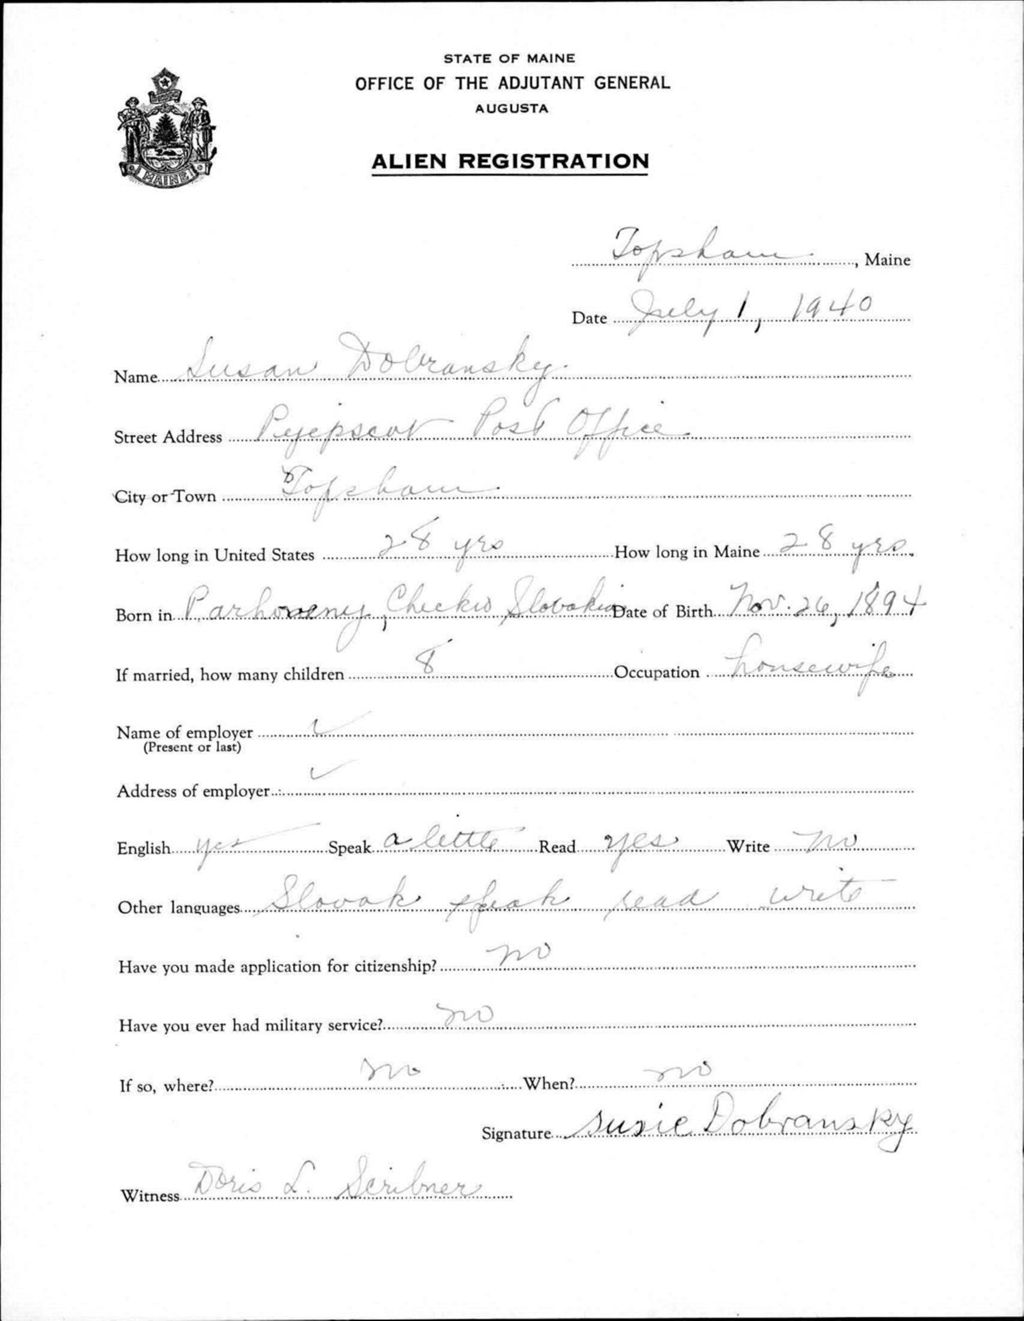 STATE OF MAINE
OFFICE OF THE ADJUTANT GENERAL
AUGUSTA
ALIEN REGISTRATION
MAINE
Topsham, Maine
Date July 1, 1940
Name Susan Dobransky.
Street Address Pejepscot Post Office
City or Town Topsham
How long in United States 28 yrs How long in Maine 28 yrs.
Born in Parhoveny, Checko Slovakia Date of Birth Nov. 26, 1894
If married, how many children 8 Occupation housewife
Name of employer ✓
(Present or last)
Address of employer ✓
English yes Speak a little Read yes Write no
Other languages Slovak speak read write
Have you made application for citizenship? no
Have you ever had military service? no
If so, where? no When? no
Signature Susie Dobransky
Witness Doris L. Scribner